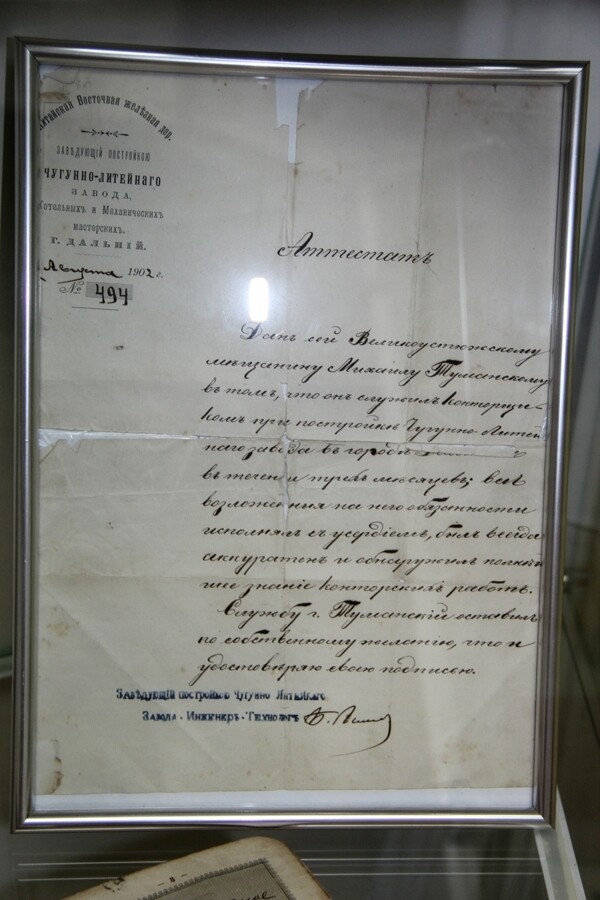 Китайская Восточная желѣзная дор.
ЗАВѢДУЮЩІЙ ПОСТРОЙКОЮ
ЧУГУННО-ЛИТЕЙНАГО
ЗАВОДА,
Котельныхъ и Механическихъ
мастерскихъ.
Г. ДАЛЬНІЙ.
Августа 1902 г.
№ 494
Аттестатъ
Данъ сей Великоустюжскому
мѣщанину Михаилу Туманскому
въ томъ, что онъ служилъ конторщи-
комъ при постройкѣ Чугунно-Литей
наго завода въ городѣ
въ течен и трехъ мѣсяцевъ; всѣ
возложенныя на него обязанности
исполнялъ съ усердіемъ, былъ всегда
аккуратенъ и обнаружилъ полнѣй
шее знаніе конторскихъ работъ.
Службу г. Туманскій оставилъ
по собственному желанію, что и
удостовѣряю своею подписью.
Завѣдующій постройкою Чугунно Литейнаго
Завода. Инженеръ-Технологъ